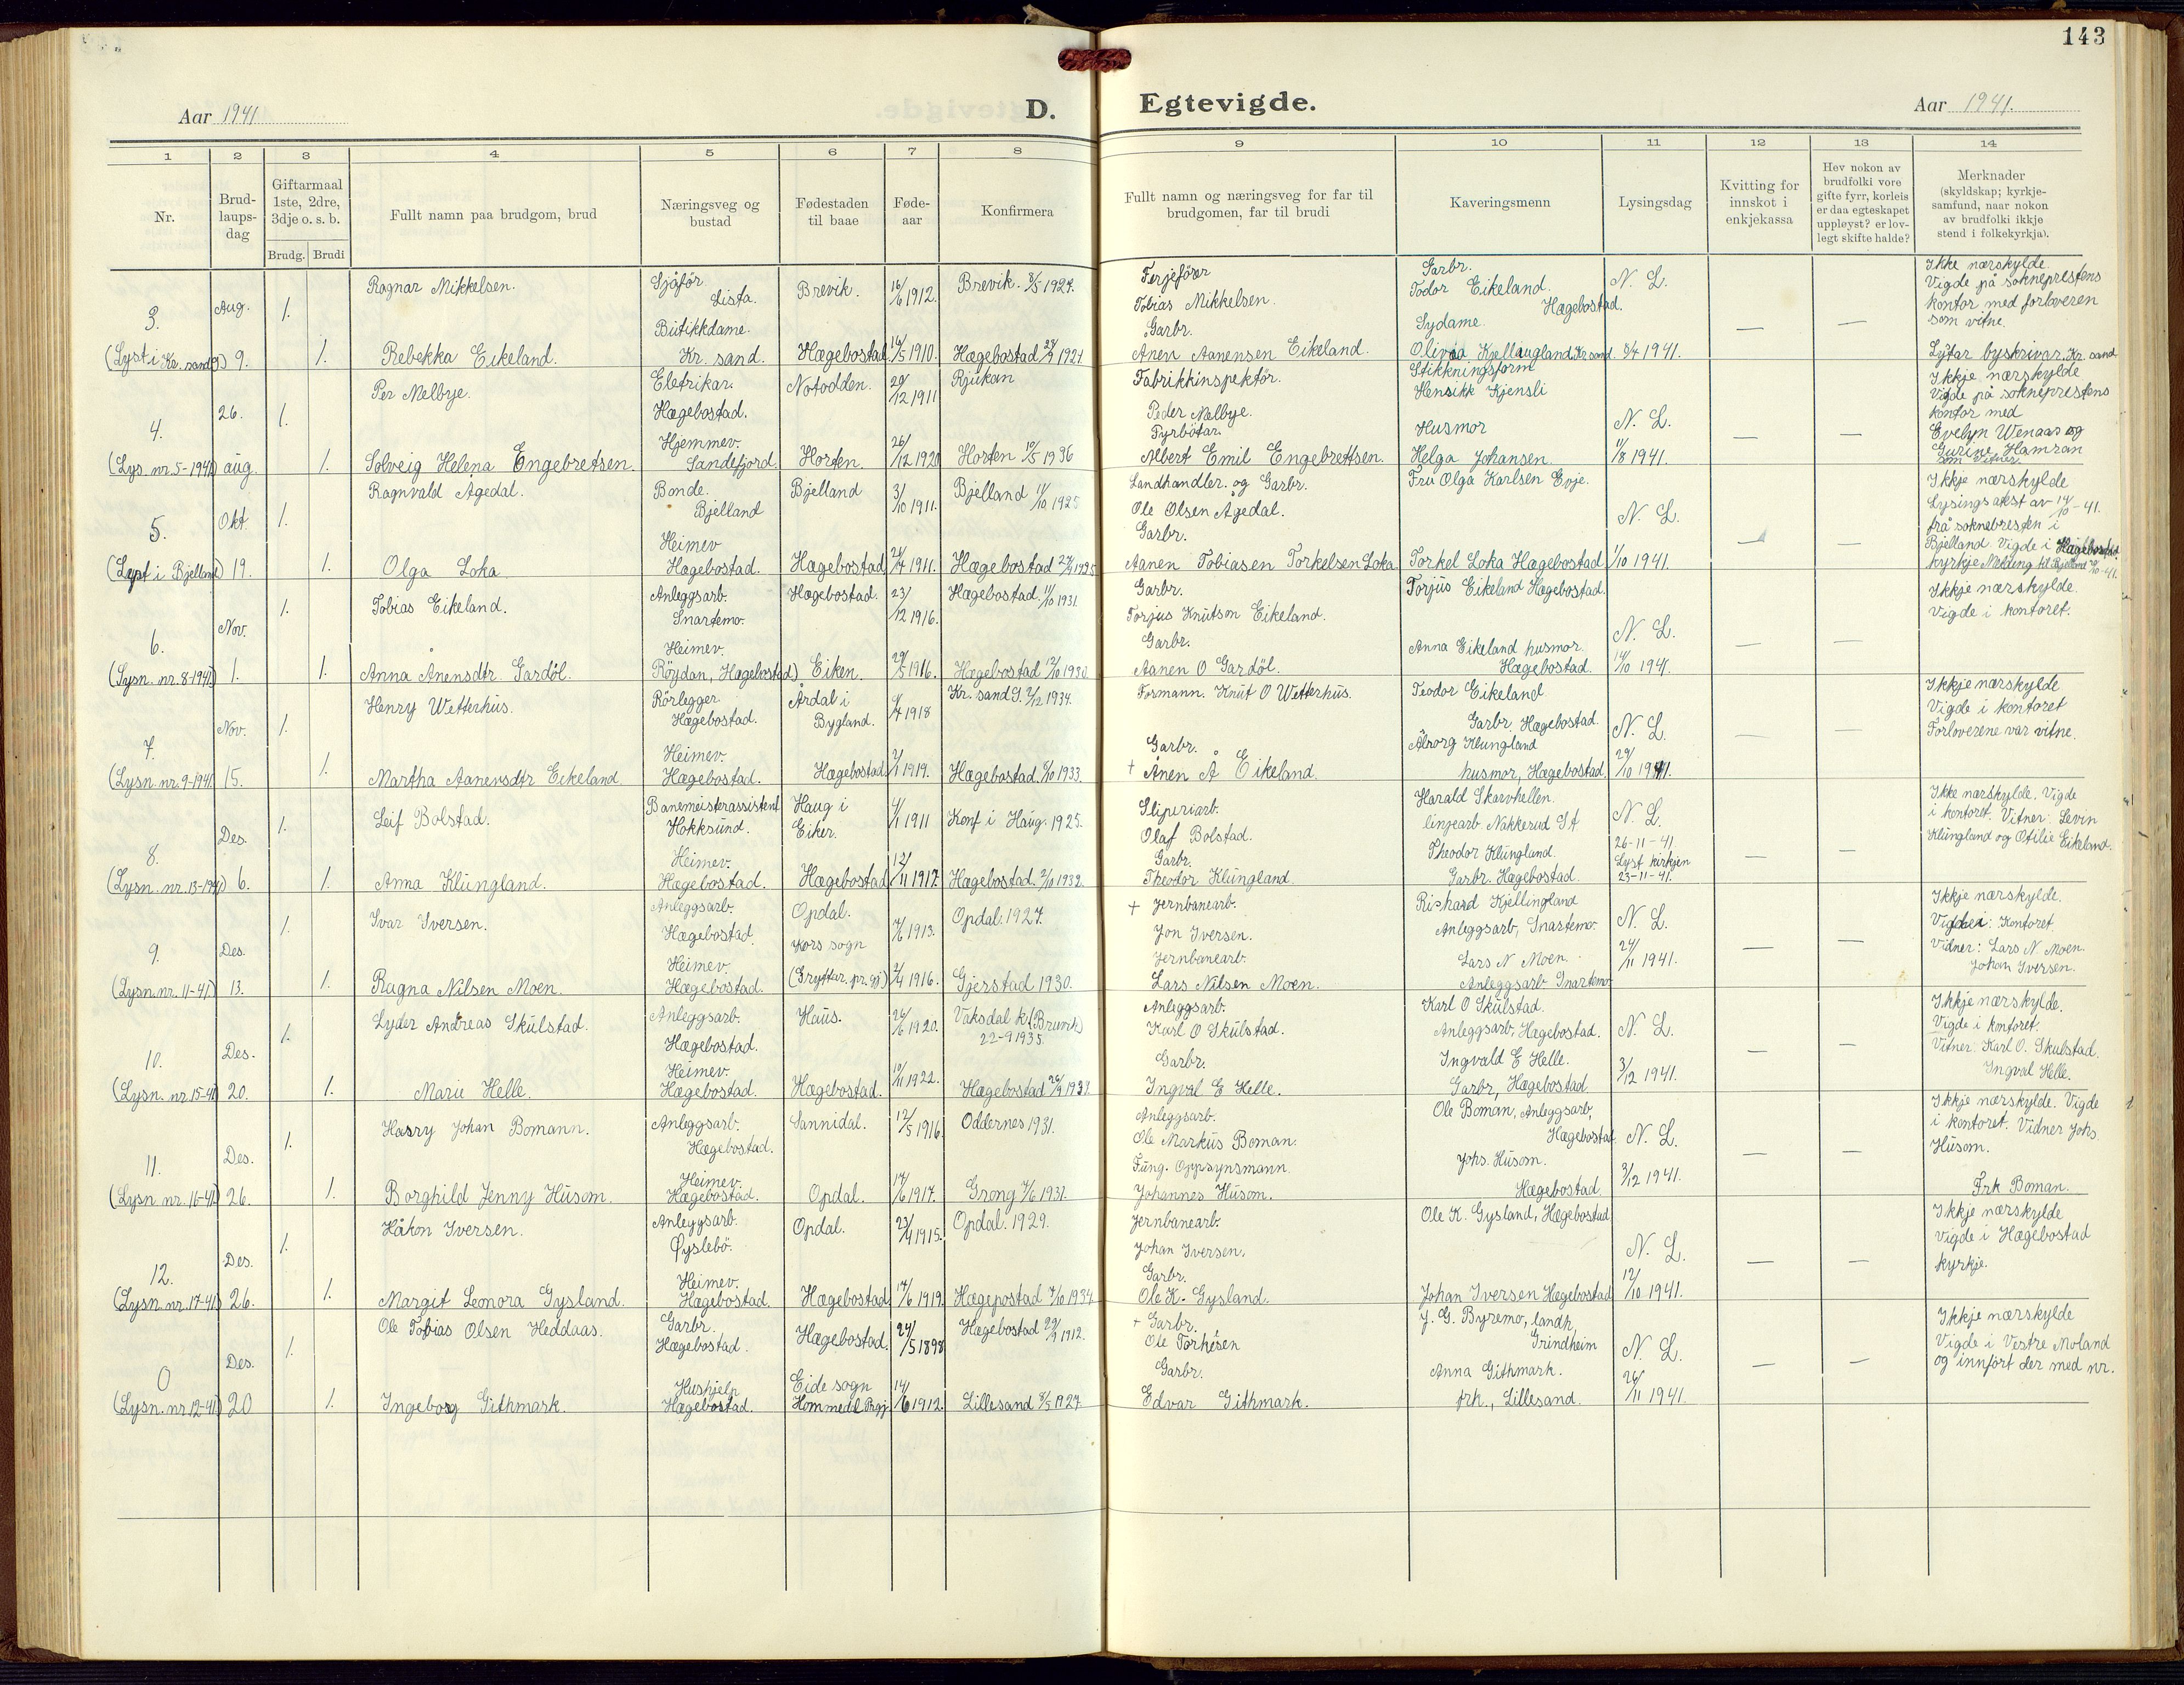 143
Aar 1941
D. Egtevigde.
Aar 1941.
1 2 3 4 5 6 7 8 9 10 11 12 13 14
Nr.
Brud-
laups-
dag
Giftarmaal
1ste, 2dre,
3dje o. s. b.
Brudg. Brudi
Fullt namn paa brudgom, brud
Næringsveg og
bustad
Fødestaden
til baae
Føde-
aar
Konfirmera
Fullt namn og næringsveg for far til
brudgomen, far til brudi
Kaveringsmenn
Lysingsdag
Kvitting for
innskot i
enkjekassa
Hev nokon av
brudfolki vore
gifte fyrr, korleis
er daa egteskapet
uppløyst? er lov-
legt skifte halde?
Merknader
(skyldskap; kyrkje-
samfund, naar nokon
av brudfolki ikkje
stend i folkekyrkja).
3.
(Lyst i Kr. sand S)
Aug.
9.
1.
Ragnar Mikkelsen.
Sjåför
Lista.
Brevik.
16/6 1912.
Brevik. 8/5 1927.
Ferjeförer
Tobias Mikkelsen.
Garbr.
Todor Eikeland.
Hægebostad.
N. L.
Ikke nærskylde.
Vigde på sokneprestens
kontor med forloveren
som vitne.
1.
Rebekka Eikeland.
Butikkdame.
Kr. sand.
Hægebostad
14/5 1910.
Hægebostad 28/9 1924
Garbr.
Anen Aanensen Eikeland.
Sydame.
Olivia Kjellaugland Kr sand.
8/4 1941.
—
—
Lyser byskrivar. Kr. sand
4.
(Lys. nr. 5-1941)
26.
aug.
1.
Per Melbye.
Eletrikar.
Hægebostad.
Notodden.
29/12 1911
Rjukan
Fabrikkinspektör.
Peder Melbye.
Stikkningsform
Henrikk Kjensli
N. L.
Ikkje nærskylde
Vigde på sokneprestens
kontor med
Evelyn Wenaas og
Gurine Hamran
som Vitner.
1.
Solveig Helena Engebretsen.
Hjemmev.
Sandefjord.
Horten.
26/12 1920
Horten 10/5 1936
Fyrbötar.
Albert Emil Engebretsen.
Husmor
Helga Johansen.
11/8 1941.
—
—
5.
(Lyst i Bjelland)
Okt.
19.
1.
Ragnvald Ågedal.
Bonde.
Bjelland
Bjelland
3/10 1911.
Bjelland 11/10 1925
Landhandler. og Garbr.
Ole Olsen Ågedal.
Fru Olga Karlsen Evje.
N. L.
Ikkje nærskylde
Lysingsattest av 14/10-41.
frå soknepresten i
Bjelland. Vigde i Hægebostad
kyrkje. Melding til Bjelland 20/10-41.
1.
Olga Loka
Heimev
Hægebostad.
Hægebostad
21/4 1911.
Hægebostad 27/9 1925
Garbr.
Aanen Tobiasen Torkelsen Loka
Torkel Loka Hægebostad
1/10 1941.
—
—
6.
(Lysn. nr. 8-1941)
Nov.
1.
1.
Tobias Eikeland.
Anleggsarb.
Snartemo.
Hægebostad.
23/12 1916.
Hægebostad. 11/10 1931.
Garbr.
Torjus Knutson Eikeland.
Torjus Eikeland Hægebostad.
N. L.
Ikkje nærskylde.
Vigde i kontoret.
1.
Anna Ånensdtr. Gardöl.
Heimev.
Röydan, Hægebostad)
Eiken.
29/5 1916.
Hægebostad 12/10 1930.
Garbr.
Aanen O Gardöl.
Anna Eikeland husmor.
Hægebostad.
14/10 1941.
—
—
7.
(Lysn. nr. 9-1941)
Nov.
15.
1.
Henry Wetterhus.
Rörlegger
Hægebostad.
Årdal i
Bygland.
6/4 1918
Kr. sand S. 2/12 1934.
Formann. Knut O Wetterhus.
Teodor Eikeland
Garbr. Hægebostad.
N. L.
Ikkje nærskylde
Vigde i kontoret
Forloverene var vitne.
1.
Martha Aanensdtr Eikeland
Heimev.
Hægebostad.
Hægebostad
2/1 1919.
Hægebostad. 8/10 1933.
Garbr.
+ Ånen Å Eikeland.
Ålborg Klungland
husmor, Hægebostad.
29/10 1941.
—
—
8.
(Lysn. nr. 13-1941)
Des.
6.
1.
Leif Bolstad.
Banemeisterassistent
Hokksund.
Haug i
Eiker.
4/1 1911
Konf i Haug. 1925.
Sliperiarb.
Olaf Bolstad.
Harald Skarvhellen.
linjearb Nakkerud St
N. L.
26-11-41.
Ikke nærskylde. Vigde
i kontoret. Vitner: Levin
Klungland og Otilie Eikeland.
1.
Anna Klungland.
Heimev.
Hægebostad.
Hægebostad
12/11 1917.
Hægebostad. 2/10 1932.
Garbr.
Theodor Klungland.
Theodor Klungland.
Garbr. Hægebostad.
Lyst kirkjen
23-11-41.
—
—
9.
(Lysn. nr. 11-41)
Des.
13.
1.
Ivar Iversen.
Anleggsarb.
Hægebostad.
Opdal.
7/6 1913.
Opdal. 1927.
+ Jernbanearb.
Jon Iversen.
Rishard Kjellingland
Anleggsarb, Snartemo.
N. L.
Ikkje nærskylde.
Vigde i: Kontoret.
Vidner: Lars N. Moen.
Johan Iversen.
1.
Ragna Nilsen Moen.
Heimev.
Hægebostad.
Kors sogn
(Grytten pr. gj)
2/4 1916.
Gjerstad 1930.
Jernbanearb.
Lars Nilsen Moen.
Lars N Moen.
Anleggsarb Snartemo
24/11 1941.
—
—
10.
(Lysn. nr. 15-41)
Des.
20.
1.
Lyder Andreas Skulstad.
Anleggsarb.
Hægebostad.
Haus.
26/6 1920.
Vaksdal k. (Bruvik)
22-9 1935.
Anleggsarb.
Karl O Skulstad.
Karl O Skulstad.
Anleggsarb, Hægebostad.
N. L.
Ikkje nærskylde.
Vigde i kontoret.
Vitner: Karl O. Skulstad.
Ingval Helle.
1.
Marie Helle.
Heimev.
Hægebostad.
Hægebostad.
19/11 1922.
Hægebostad 26/9 1937.
Garbr.
Ingval E Helle.
Ingvald E Helle.
Garbr, Hægebostad.
3/12 1941.
—
—
11.
(Lysn nr. 16-41)
Des.
26.
1.
Harry Johan Bomann.
Anleggsarb.
Hægebostad.
Sannidal.
12/5 1916.
Oddernes 1931.
Anleggsarb.
Ole Markus Boman.
Ole Boman, Anleggsarb,
Hægebostad
N. L.
Ikkje nærskylde. Vigde
i kontoret. Vidner Johs.
Husom.
Frk Boman.
1.
Borghild Jenny Husom.
Heimev.
Hægebostad.
Opdal.
14/6 1917.
Grong 7/6 1931.
Fung. Oppsynsmann.
Johannes Husom.
Johs. Husom.
Hægebostad.
3/12 1941.
—
—
12.
(Lysn. nr. 17-41)
Des.
26.
1.
Håkon Iversen.
Anleggsarb.
Øyslebö.
Opdal.
23/4 1915.
Opdal. 1929.
Jernbanearb.
Johan Iversen.
Ole K. Gysland, Hægebostad
N. L.
Ikkje nærskylde
vigde i Hægebostad
kyrkje.
1.
Margit Leonora Gysland.
Heimev.
Hægebostad.
Hægebostad
17/6 1919.
Hægepostad 7/10 1934
Garbr.
Ole K. Gysland.
Johan Iversen Hægebostad
12/10 1941.
—
—
0
(Lysn. nr. 12-41)
Des.
20
1.
Ole Tobias Olsen Heddaas.
Garbr.
Hægebostad.
Hægebostad.
24/5 1898
Hægebostad 29/9 1912.
+ Garbr.
Ole Torkesen
J. G. Byremo, landh,
Grindheim
N. L.
Ikkje nærskylde
Vigde i Vestre Moland
og innfört der med nr.
1.
Ingeborg Githmark.
Hushjelp
Hægebostad.
Eide sogn
Hommedl Prgj
14/6 1912.
Lillesand 8/5 1927.
Garbr.
Edvar Githmark.
Anna Githmark.
frk., Lillesand.
26/11 1941.
—
—